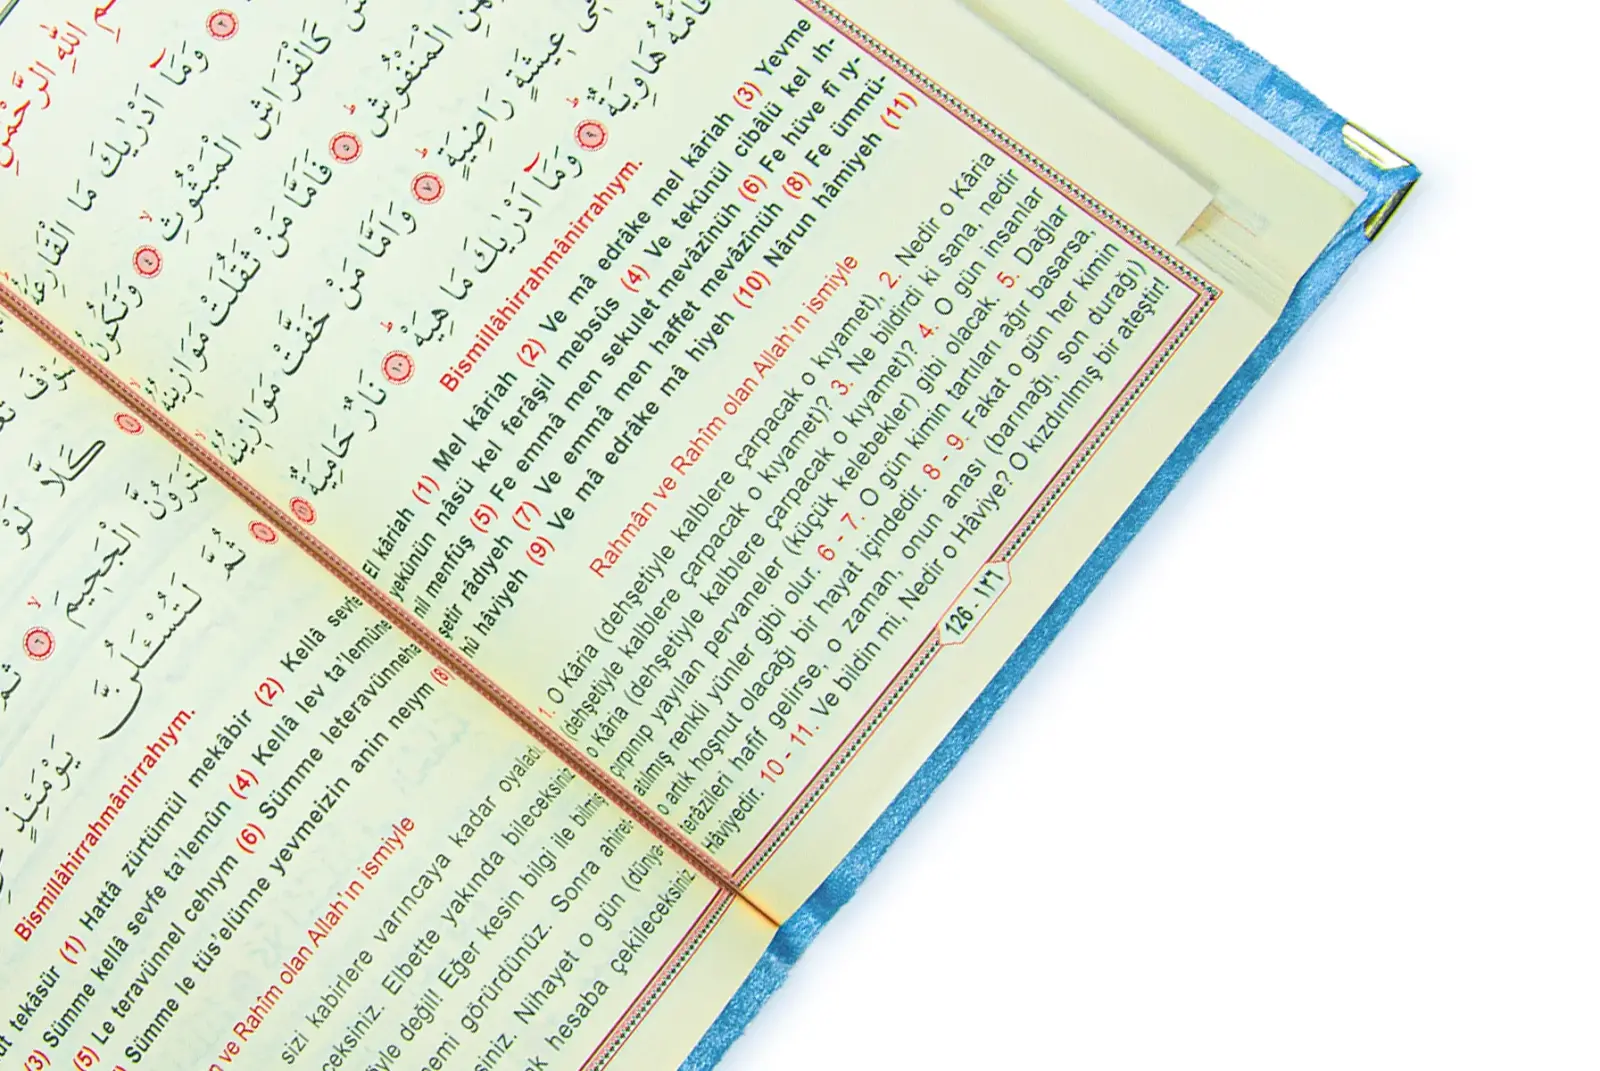 الله الرَّحْمٰنِ
وَمَٓا اَدْرٰيكَ مَا الْقَارِعَةُ
كَالْفَرَاشِ الْمَبْثُوثِۙ ٤ وَتَكُونُ
الْمَنْفُوشِۜ ٥ فَاَمَّا مَنْ ثَقُلَتْ مَوَازِينُهُۙ
عِيشَةٍ رَاضِيَةٍۜ ٧ وَاَمَّا مَنْ خَفَّتْ مَوَازِينُهُۙ
فَاُمُّهُ هَاوِيَةٌۜ ٩ وَمَٓا اَدْرٰيكَ مَا هِيَهْۜ ١٠ نَارٌ حَامِيَةٌ ١١
Bismillâhirrahmânirrahıym.
El kâriah (1) Mel kâriah (2) Ve mâ edrâke mel kâriah (3) Yevme
yekûnün nâsü kel ferâşil mebsûs (4) Ve tekûnül cibâlü kel ıh-
nil menfûş (5) Fe emmâ men sekulet mevâzînüh (6) Fe hüve fî ıy-
şetir râdıyeh (7) Ve emmâ men haffet mevâzînüh (8) Fe ümmü-
hû hâviyeh (9) Ve mâ edrâke mâ hiyeh (10) Nârun hâmiyeh (11)
Rahmân ve Rahîm olan Allah'ın ismiyle
1. O Kâria (dehşetiyle kalblere çarpacak o kıyamet), 2. Nedir o Kâria
(dehşetiyle kalblere çarpacak o kıyamet)? 3. Ne bildirdi ki sana, nedir
o Kâria (dehşetiyle kalblere çarpacak o kıyamet)? 4. O gün insanlar
çırpınıp yayılan pervaneler (küçük kelebekler) gibi olacak. 5. Dağlar
atılmış renkli yünler gibi olur. 6 - 7. O gün kimin tartıları ağır basarsa,
o artık hoşnut olacağı bir hayat içindedir. 8 - 9. Fakat o gün her kimin
terâzileri hafif gelirse, o zaman, onun anası (barınağı, son durağı)
Hâviyedir. 10 - 11. Ve bildin mi, Nedir o Hâviye? O kızdırılmış bir ateştir!
126 - ١٢٦
كَلَّا لَوْ
لَتَرَوُنَّ الْجَحِيمَۙ ٦ ثُمَّ
ثُمَّ لَتُسْـَٔلُنَّ يَوْمَئِذٍ
Bismillâhirrahmânirrahıym.
tekâsür (1) Hattâ zürtümül mekâbir (2) Kellâ sevfe
(3) Sümme kellâ sevfe ta'lemûn (4) Kellâ lev ta'lemûne
(5) Le teravünnel cehıym (6) Sümme leteravünneha
Sümme le tüs'elünne yevmeizin anin neıym (8)
ve Rahîm olan Allah'ın ismiyle
sizi kabirlere varıncaya kadar oyaladı.
Elbette yakında bileceksiniz
değil! Eğer kesin bilgi ile bilmiş
görürdünüz. Sonra ahiret
Nihayet o gün (dünya
hesaba çekileceksiniz